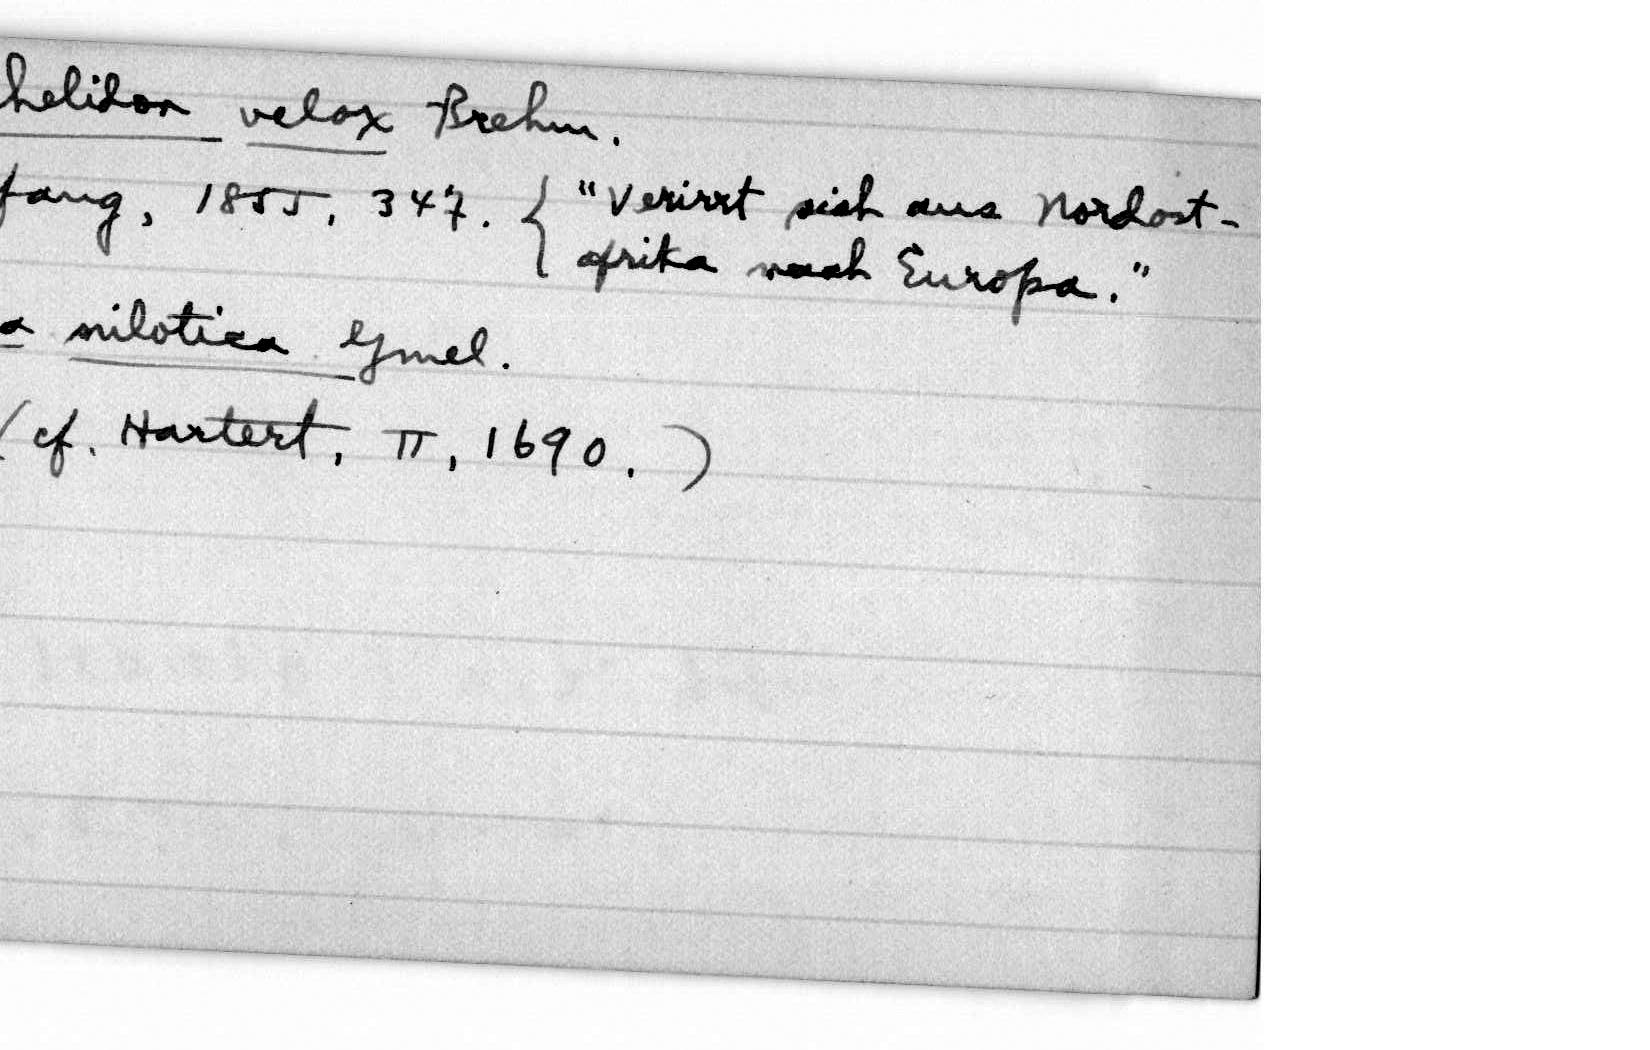 helidon velox Brehm.
fang, 1855, 347. { "Verirrt sich aus Nordost-
afrika nach Europa."
a nilotica Gmel.
(cf. Hartert, II, 1690.)